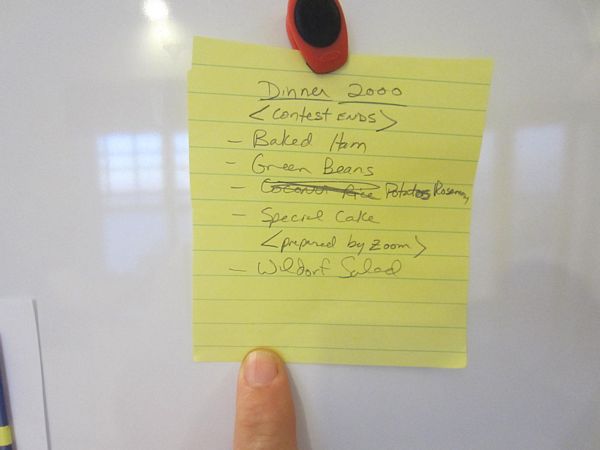 Dinner 2000
<contest ENDS>
- Baked Ham
- Green Beans
- Coconut Rice Potatoes Rosemary
- Special Cake
<prepared by zoom>
- Waldorf Salad